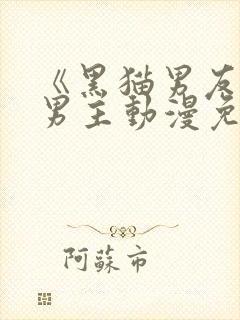 《黑猫男友
男主動漫免
阿蘇市